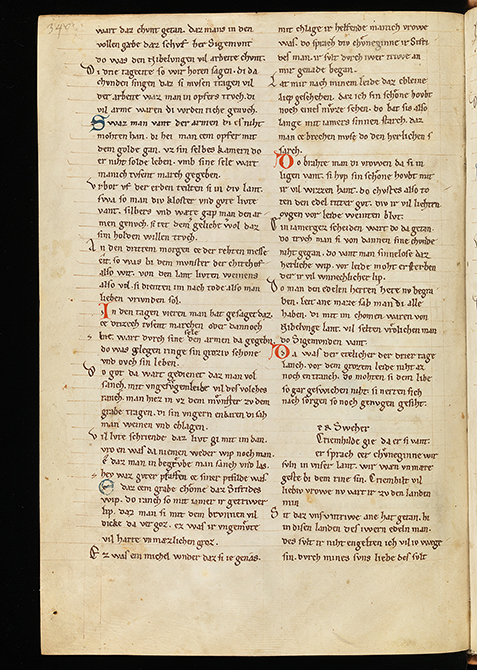 wart daz chvnt getan. daz mans in den
wollen gæbe daz schvf her Sigemvnt
do was den Nibelungen vil arbeite chvnt.
Di drie tagezite so wir horen sagen. di da
chvnden singen daz si mvsen tragen vil
der arbeite waz man in opfers trvch. di
vil arme waren di wrden riche genvch.
Swaz man vant der armen di es niht
mohten han. di hiez man zem opfer mit
dem golde gan. vz sin selbes kamern do
er niht solde leben. vmb sine sele wart
manich tvsent march gegeben.
Vrbor vf der erden teilter in div lant.
swa so man div kloster vnd gvte livte
vant. silbers vnd wæte gap man den ar
men genvch. si tet dem geliche wol daz
sim holden willen trvch.
An dem dritten morgen ze der rehten messe
cit. so was bi dem mvnster der chirchof
also wit. von den lant livten weinens
also vol. si dienten im nach tode also man
lieben vrivnden sol.
In den tagen vieren man hat gesaget daz.
ze drizech tvsent marchen oder dannoch
baz. wart dvrch sine sele den armen da gegebn.
do was gelegen ringe sin groziv schone
vnd ovch sin leben.
Do got da wart gedienet daz man vol
sanch. mit vngefvgem leide vil des volches
ranch. man hiez in vz dem mvnster zv dem
grabe tragen. di sin vngern enbaren di sah
man weinen vnd chlagen.
Vil lvte schriende daz livt gi mit im dan.
vro en was da niemen weder wip noch man.
e daz man in begrvbe man sanch vnd las.
hey waz gvter pfaffen ze siner pfilde was
E daz zem grabe chome daz Sifrides
wip. do ranch so mit iamer ir getriwer
lip. daz man si mit dem brvnnen vil
dicke da vergoz. ez was ir vngemvte
vil harte vnmæzlichen groz.
Ez was ein michel wnder daz si ie genas.
mit chlage ir helfende manich vrowe
was. do sprach div chvneginne ir Sifri
des man. ir svlt dvrch iwer triwe an
mir genade began.
Lat mir nach minem leide daz chleine
liep geschehen. daz ich sin schone hovbt
noch eines mvze sehen. do bat sis also
lange mit iamers sinnen starch. daz
man ze brechen mvse do den herlichen s
sarch.
Do brahte man di vrowen da si in
ligen vant. si hvp sin schone hovbt mit
ir vil wizzen hant. do chvstes also to
ten den edel riter gvt. div ir vil liehten
ovgen vor leide weinten blvt.
Ein iamerlicz scheiden wart do da getan.
do trvch man si von dannen sine chvnde
niht gegan. do vant man sinnelose daz
herliche wip. vor leide moht ersterben
der ir vil wnnechlicher lip.
Do man den edelen herren hete nv begra
ben. leit ane maze sah man di alle
haben. di mit im chomen waren von
Nibelvnge lant. vil selten vrolichen man
do Sigemvnden vant.
Do was der etelicher der drier tage
lanch. vor dem grozen leide niht az
noch entranch. do mohten si dem libe
so gar geswichen niht. si nerten sich
nach sorgen so noch genvgen geschiht.
Der Sweher
Criemhilde gie da er si vant.
er sprach zer chvneginne wir
svln in vnser lant. wir wæn vnmære
geste bi dem rine sin. Criemhilt vil
liebiv vrowe nv vart ir zv den landen
min
Sit daz vns vntriwe ane hat getan. hi
in disen landen des iwern edeln man.
des svlt ir niht engelten ich vil iv wægt
sin. dvrch mines svns liebe des svlt